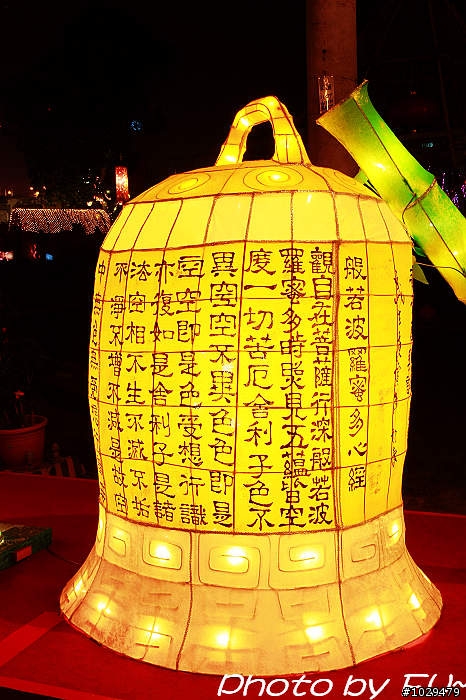 般若波羅蜜多心經
觀自在菩薩行深般若波
羅蜜多時照見五蘊皆空
度一切苦厄舍利子色不
異空空不異色色即是
空空即是色受想行識
亦復如是舍利子是諸
法空相不生不滅不垢
不淨不增不減是故空
中無色無
Photo by
#1029479